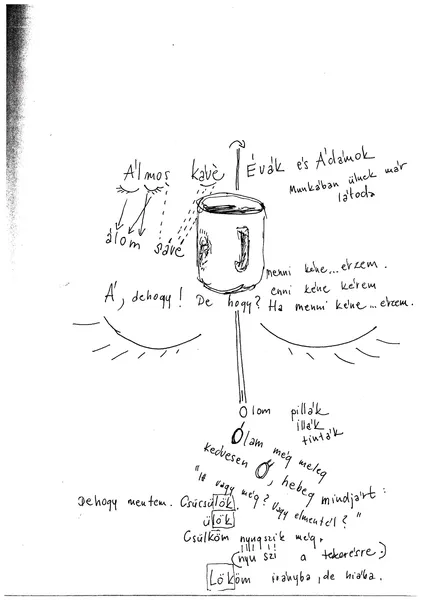 Álmos kávé
álom sávé
Évák és Ádámok
Munkában ülnek már
látoda
menni kéne...érzem.
enni kéne kérem
Á, dehogy! De hogy? Ha menni kéne...érzem.
Ólom pillák
illák
tinták
Ólam még meleg
kedvesen Ó, hebeg mindjárt:
"Itt vagy még? Vagy elmentél?"
Dehogy mentem. Csücsülök
ülök
Csülköm nyugszik még,
(nyu szi a tekerésre.)
Lököm irányba, de hiába.